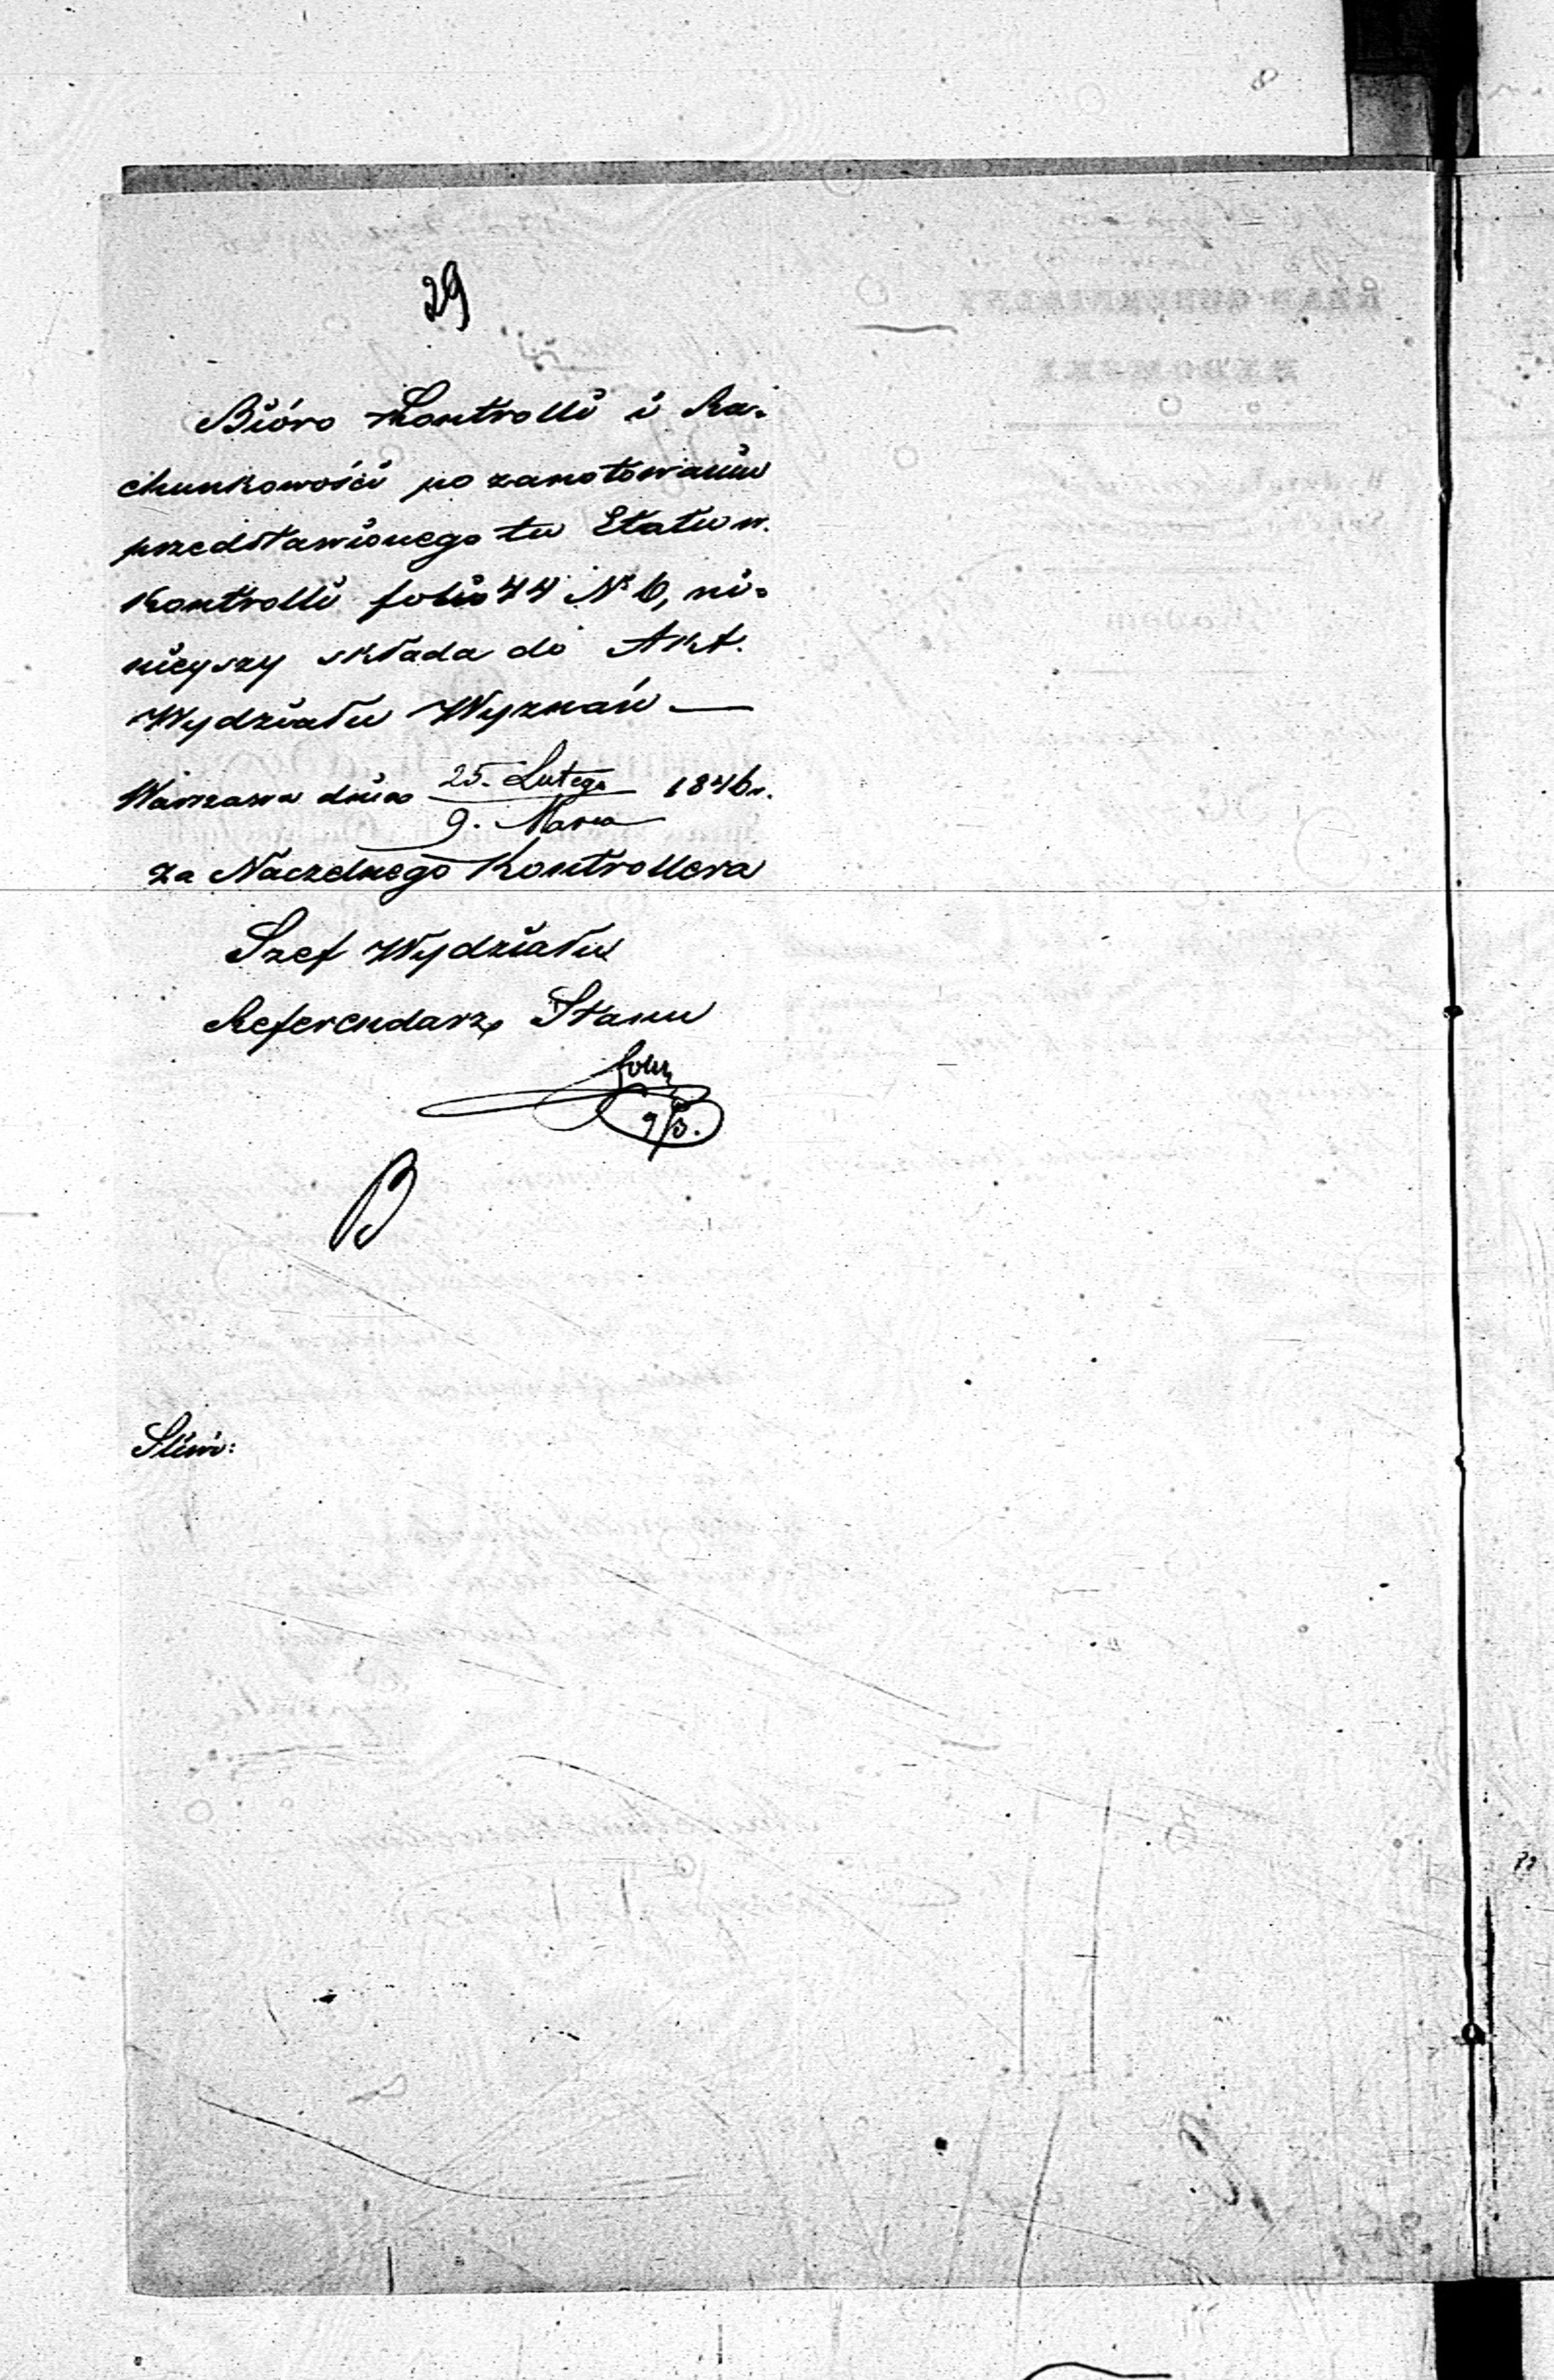 29
Bióro Kontrolli i Ra-
chunkowości po zanotowaniu
przedstawionego tu Etatu w
Kontrolli folio 44 N° 6, ni-
nieyszy składa do Akt.
Wydziału Wyznań —
Warszawa dnia 25. Lutego / 9. Marca 1846 r.
za Naczelnego Kontrollera
Szef Wydziału
Referendarz Stanu
9/3.
B
Sliwi: